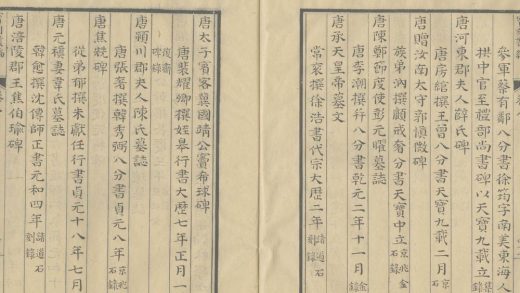 參軍蔡有鄰八分書徐筠字南美東海人
拱中官至禮部尚書碑以天寶九載立
唐河東郡夫人薛氏碑
唐房綰撰王曾八分書天寶九載二月
唐贈汝南太守郭慎微碑
族弟納撰顧戒奢分書天寶中立京兆金石錄
唐陳鄭節度使彭元曜墓誌
唐李潮撰并八分書乾元二年十一月
唐承天皇帝墓文
常袞撰徐浩書代宗大歷二年諸道石刻錄
唐太子賓客冀國靖公竇希球碑
唐裴耀卿撰姪皋行書大歷七年正月一
復齋碑錄
唐潁川郡夫人陳氏墓誌
唐張著撰韓秀弼八分書貞元八年京兆石錄
唐焦兟碑
從弟郁撰朱獻任行書貞元十八年七月
唐元妻韋氏墓誌
韓愈撰沈傳師正書元和四年諸道石刻錄
唐涪陵郡王焦伯瑜碑